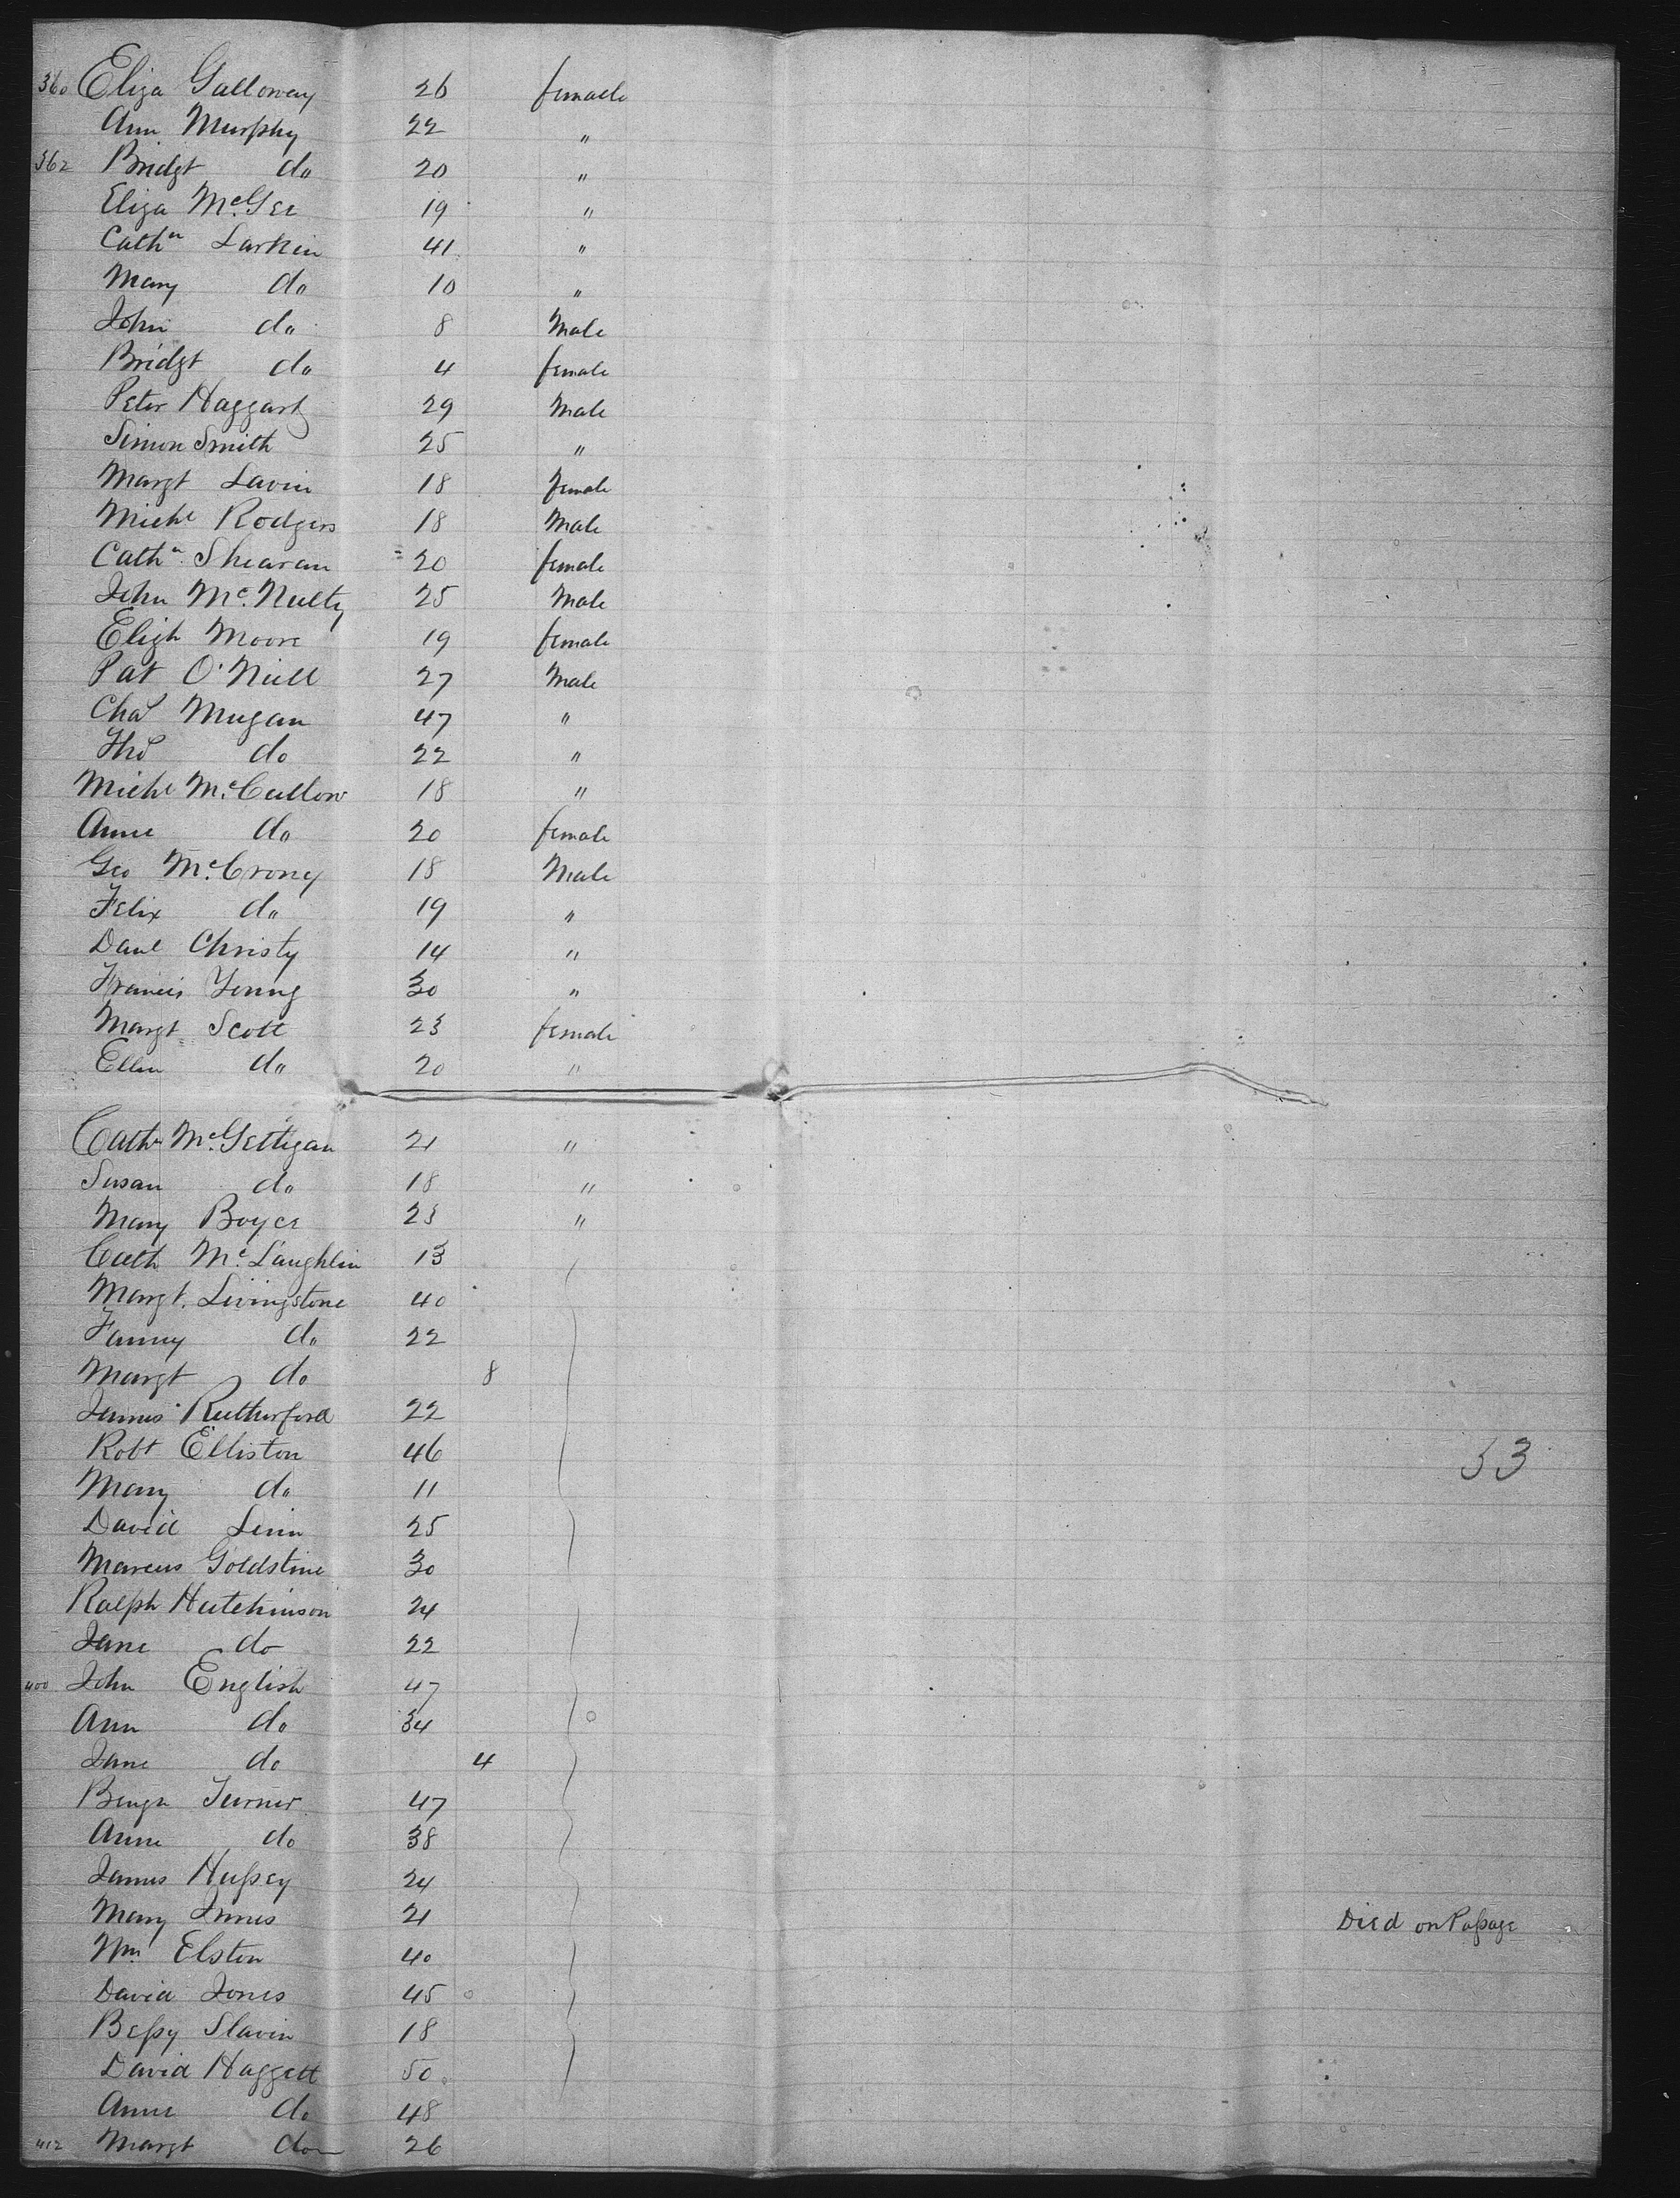 360 Eliza Galloway 26 female
Ann Murphy 22 "
362 Bridgt do 20 "
Eliza McGee 19 "
Cathn Larkin 41 "
Mary do 10 "
John do 8 Male
Bridgt do 4 female
Peter Haggarty 29 Male
Simon Smith 25 "
Margt Lavin 18 female
Michl Rodgers 18 Male
Cathn Shearan 20 female
John McNulty 25 Male
Elizh Moore 19 female
Pat O'Niell 27 Male
Chas Mugan 47 "
Thos do 22 "
Michl McCullow 18 "
Anne do 20 female
Geo McCrony 18 Male
Felix do 19 "
Danl Christy 14 "
Francis Young 30 "
Margt Scott 23 female
Ellen do 20 "
Cathn McGettigan 21 "
Susan do 18 "
Mary Boyce 23 "
Cath McLaughlin 13
Margt. Livingstone 40
Fanny do 22
Margt do 8
James Rutherford 22
Robt Elliston 46
33
Mary do 11
David Linn 25
Marcus Goldstine 30
Ralph Hutchinson 24
Jane do 22
400 John English 47
Ann do 34
Jane do 4
Benjn Turner 47
Anne do 38
James Hussey 24
Mary Innes 21 Died on Passage
Wm Elston 40
David Jones 45
Bessy Slavin 18
David Haggett 50
Anne do 48
412 Margt do 26